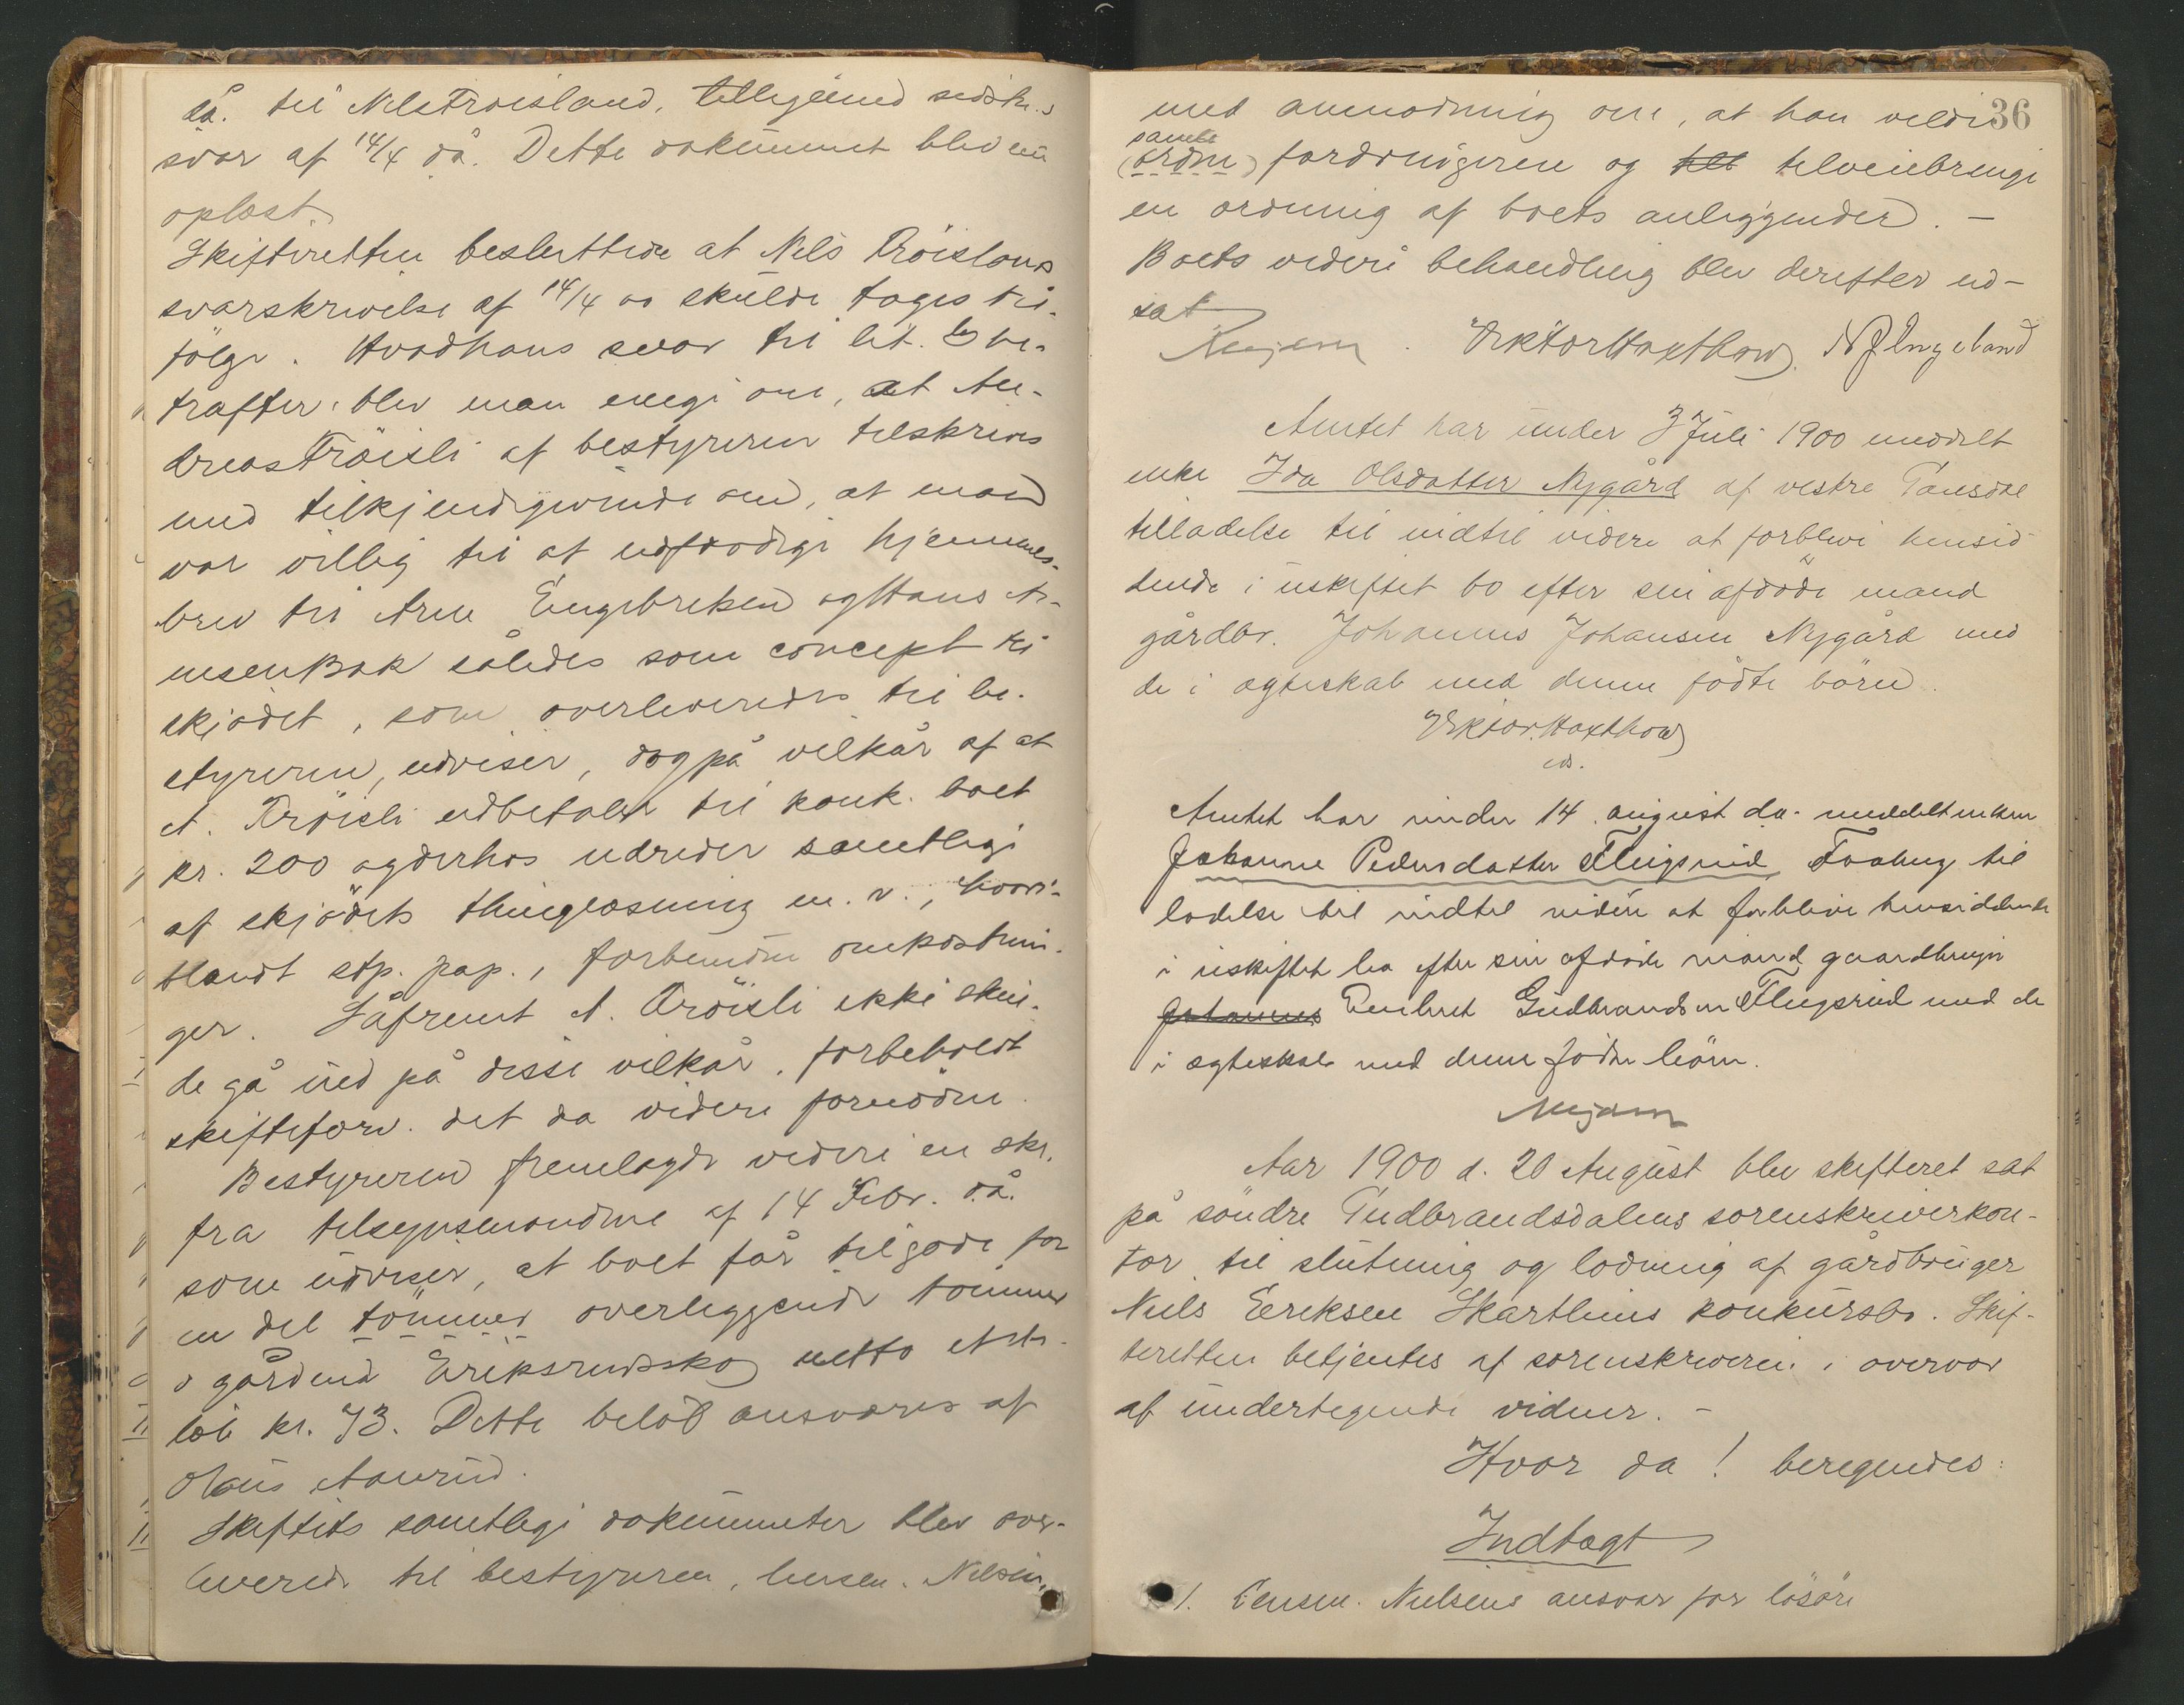 då. til Nils Fröisland, tilligemed sidstes
svar af 14/4 då. Dette dokument blev nu
oplæst.
Skifteretten besluttede at Nils Fröislands
svarskrivelse af 14/4 då skulde tages til
fölge. Hvad hans svar til lit. be-
træffer, blev man enige om, at An-
dreas Fröisli af bestyreren tilskrives
med tilkjendegivende om, at man
var villig til at udfærdige hjemmels-
brev til Arne Engebretsen og Hans
Bak således som concept til
skjødet, som overleveredes til be-
styreren, udviser, dog på vilkår af at
A. Fröisli udbetaler til konk. boet
kr. 200 og derhos udreder samtlige
af skjödets thinglæsning m. v., hvori-
blandt stp. pap., forbundne omkostnin-
ger. Såfremt A. Fröisli ikke skul-
de gå ind på disse vilkår, forbeholdt
skifteforv. det da videre fornödne.
Bestyreren fremlagde videre en skr.
fra tilsynsmændene af 14 Febr. då.
som udviser, at boet får tilgode for
en del tömmer overliggende tömmer
o gården Eriksrudskog netto
löb kr. 73. Dette belöb ansvares af
Olaus Aavrud.
Skiftets samtlige dokumenter blev over-
leverede til bestyreren, lensm. Nilsen,
36
med anmodning om, at han vilde
samle
(ordne) fordringeren og till tilveiebringe
en ordning af boets anliggender. –
Boets videre behandling blev derefter ud-
sat
Mejdem. Viktor Haxthow. N P Engeland
Amtet har under 3 Juli 1900 meddelt
enke Ida Olsdatter Nygård af vestre Gausdal
tilladelse til indtil videre at forblive hensid-
dende i uskiftet bo efter sin afdöde mand
gårdbr. Johannes Johansen Nygård med
de i ægteskab med denne födte börn.
Viktor Haxthow
cs.
Amtet har under 14. august då. meddelt enken
Johanne Pedersdatter Flugsrud, Faaberg til-
ladelse til indtil videre at forblive hensiddende
i uskiftet bo efter sin afdöde mand gaardbruger
Johannes Embret Gudbrandsen Flugsrud med de
i ægteskab med denne födte börn.
Mejdem
Aar 1900 d. 20 August blev skifteret sat
på söndre Gudbrandsdalens sorenskriverkon-
tor til slutning og lodning af gårdbruger
Niels Eriksen Skarthuns konkursbo. Skif-
teretten betjentes af sorenskriveren i overvær
af undertegnede vidner. –
Hvor da! beregnedes:
Indtægt
1. Lensm. Nielsens ansvar for lösöre